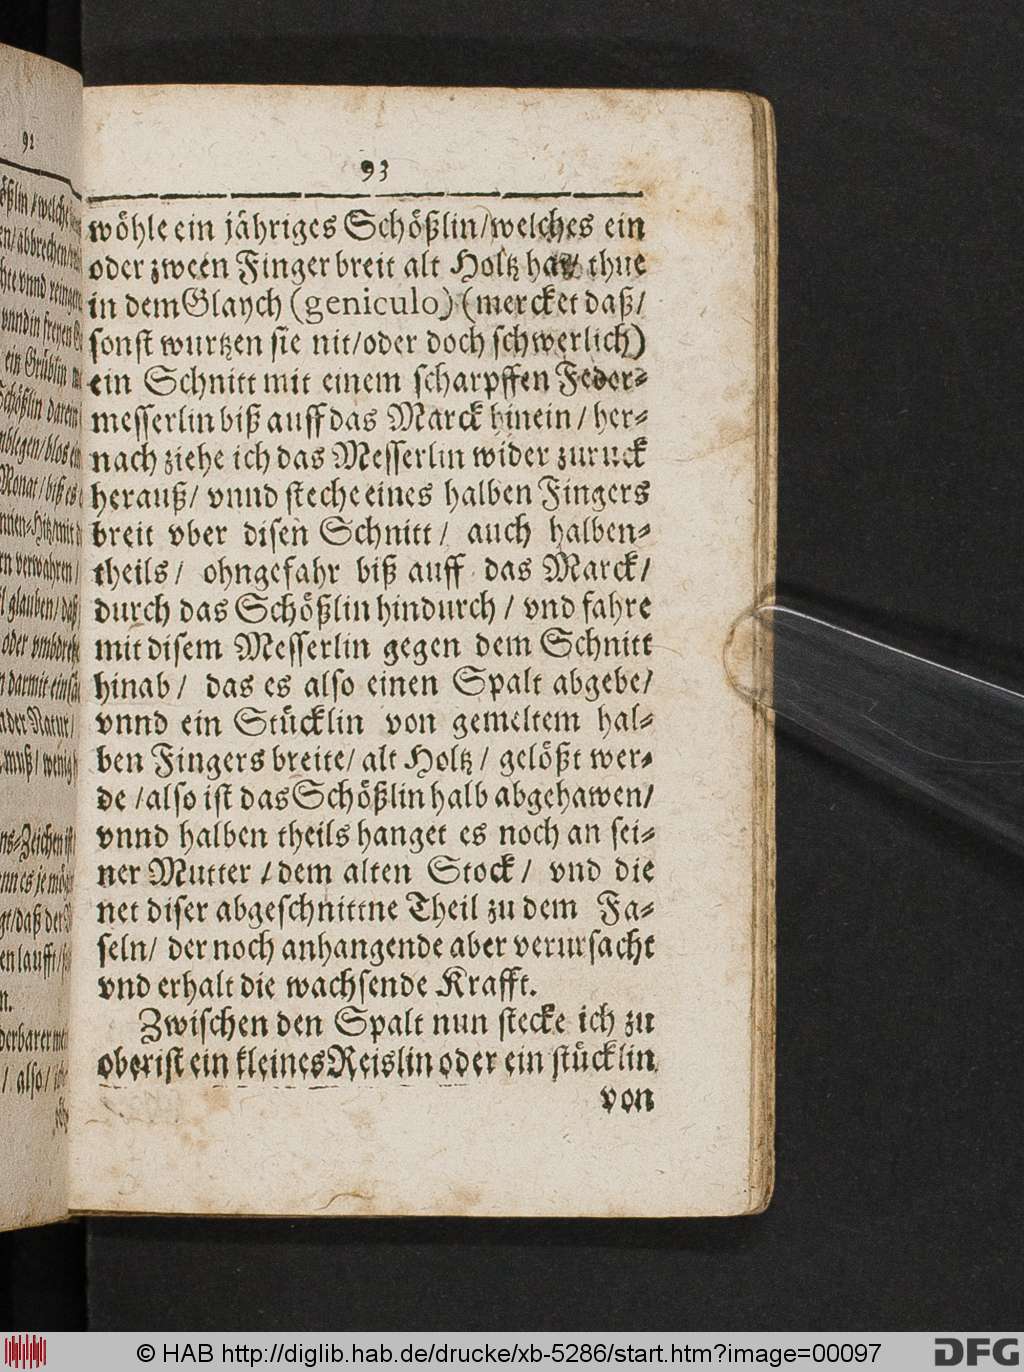 93
wöhle ein jähriges Schößlin/welches ein
oder zween Finger breit alt Holtz hat/ thue
in dem Glaych (geniculo) (mercket daß/
sonst wurtzen sie nit/oder doch schwerlich)
ein Schnitt mit einem scharpffen Feder-
messerlin biß auff das Marck hinein / her-
nach ziehe ich das Messerlin wider zuruck
herauß/ vnnd steche eines halben Fingers
breit vber disen Schnitt / auch halben-
theils / ohngefahr biß auff das Marck/
durch das Schößlin hindurch / vnd fahre
mit disem Messerlin gegen dem Schnitt
hinab / das es also einen Spalt abgebe/
vnnd ein Stücklin von gemeltem hal-
ben Fingers breite/ alt Holtz / gelößt wer-
de /also ist das Schößlin halb abgehawen/
vnnd halben theils hanget es noch an sei-
ner Mutter / dem alten Stock / vnd die
net diser abgeschnittne Theil zu dem Fa-
seln/ der noch anhangende aber verursacht
vnd erhalt die wachsende Krafft.
Zwischen den Spalt nun stecke ich zu
oberist ein kleines Reislin oder ein stücklin
von
92
© HAB http://diglib.hab.de/drucke/xb-5286/start.htm?image=00097
DFG